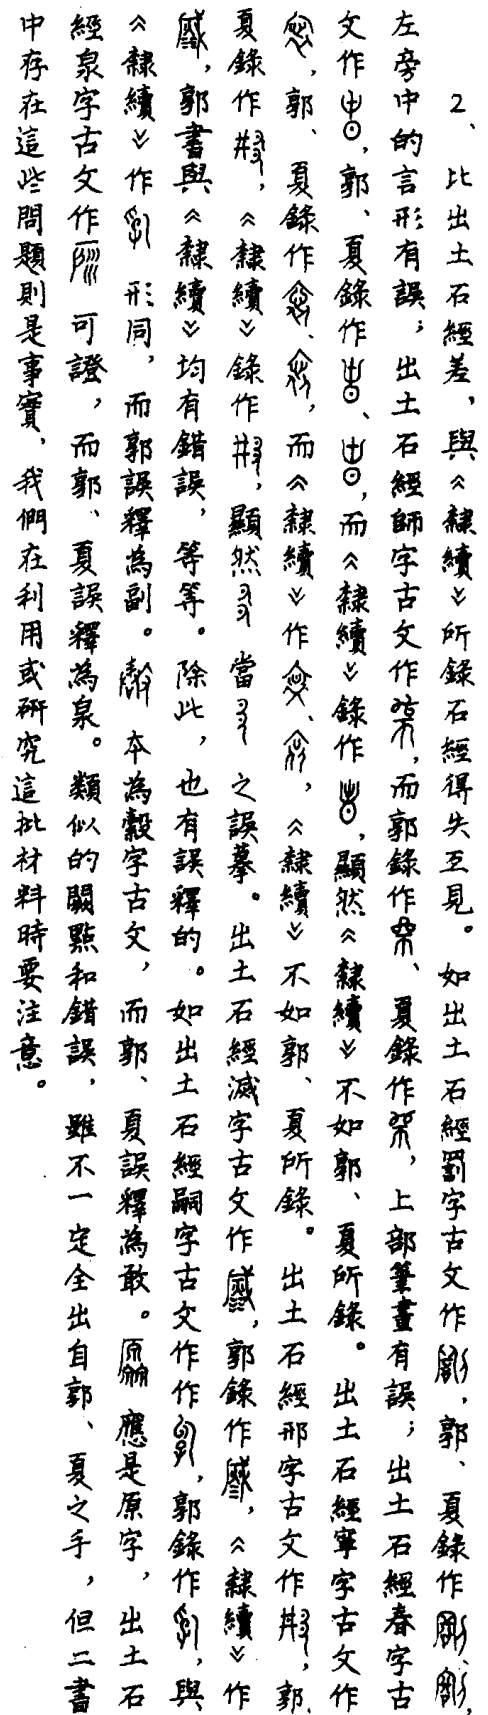 2、比出土石經差，與《隸續》所錄石經得失互見。如出土石經罰字古文作，郭、夏錄作、，
左旁中的言形有誤；出土石經師字古文作，而郭錄作、夏錄作，上部筆畫有誤；出土石經春字古
文作，郭、夏錄作、，而《隸續》錄作，顯然《隸續》不如郭、夏所錄。出土石經寧字古文作
，郭、夏錄作、，而《隸續》作、，《隸續》不如郭、夏所錄。出土石經邢字古文作，郭、
夏錄作，《隸續》錄作，顯然當之誤摹。出土石經滅字古文作，郭錄作，《隸續》作
，郭書與《隸續》均有錯誤，等等。除此，也有誤釋的。如出土石經嗣字古文作作，郭錄作，與
《隸續》作形同，而郭誤釋為副。本為穀字古文，而郭、夏誤釋為敢。應是原字，出土石
經泉字古文作可證，而郭、夏誤釋為泉。類似的闕點和錯誤，雖不一定全出自郭、夏之手，但二書
中存在這些問題則是事實，我們在利用或研究這批材料時要注意。